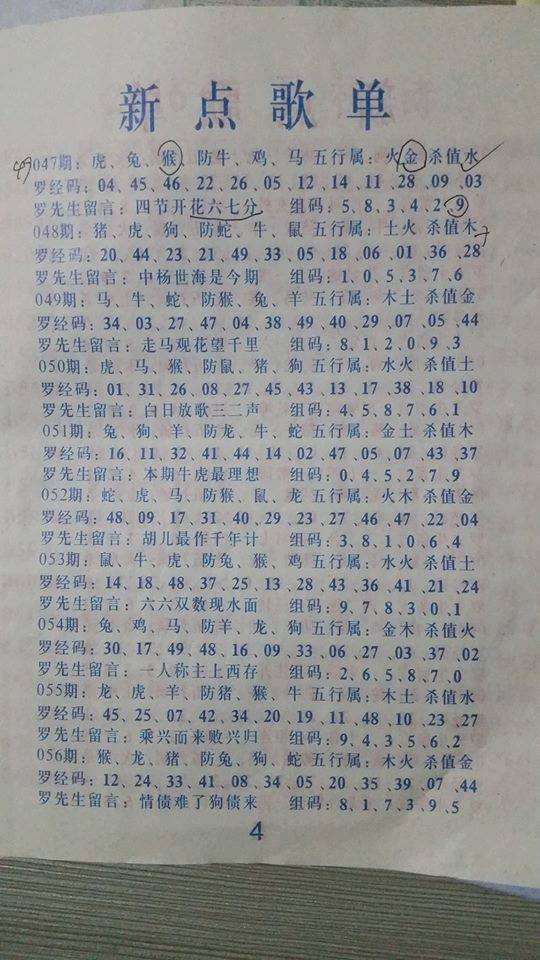 新点歌单
49 047期：虎、兔、猴、防牛、鸡、马 五行属：火金 杀值水
罗经码：04、45、46、22、26、05、12、14、11、28、09、03
罗先生留言：四节开花六七分 组码：5、8、3、4、2、9
048期：猪、虎、狗、防蛇、牛、鼠 五行属：土火 杀值木
罗经码：20、44、23、21、49、33、05、18、06、01、36、28
罗先生留言：中杨世海是今期 组码：1、0、5、3、7、6
049期：马、牛、蛇、防猴、兔、羊 五行属：木土 杀值金
罗经码：34、03、27、47、04、38、49、40、29、07、05、44
罗先生留言：走马观花望千里 组码：8、1、2、0、9、3
050期：虎、马、猴、防鼠、猪、狗 五行属：水火 杀值土
罗经码：01、31、26、08、27、45、43、13、17、38、18、10
罗先生留言：白日放歌三二声 组码：4、5、8、7、6、1
051期：兔、狗、羊、防龙、牛、蛇 五行属：金土 杀值木
罗经码：16、11、32、41、44、14、02、47、05、07、43、37
罗先生留言：本期牛虎最理想 组码：0、4、5、2、7、9
052期：蛇、虎、马、防猴、鼠、龙 五行属：火木 杀值金
罗经码：48、09、17、31、40、29、23、27、46、47、22、04
罗先生留言：胡儿最作千年计 组码：3、8、1、0、6、4
053期：鼠、牛、虎、防兔、猴、鸡 五行属：水火 杀值土
罗经码：14、18、48、37、25、13、28、43、36、41、21、24
罗先生留言：六六双数现水面 组码：9、7、8、3、0、1
054期：兔、鸡、马、防羊、龙、狗 五行属：金木 杀值火
罗经码：30、17、49、48、16、09、33、06、27、03、37、02
罗先生留言：一人称主上西存 组码：2、6、5、8、7、0
055期：龙、虎、羊、防猪、猴、牛 五行属：木土 杀值水
罗经码：45、25、07、42、34、20、19、11、48、10、23、27
罗先生留言：乘兴而来败兴归 组码：9、4、3、5、6、2
056期：猴、龙、猪、防兔、狗、蛇 五行属：木火 杀值金
罗经码：12、24、33、41、08、34、05、20、35、39、07、44
罗先生留言：情债难了狗债来 组码：8、1、7、3、9、5
4